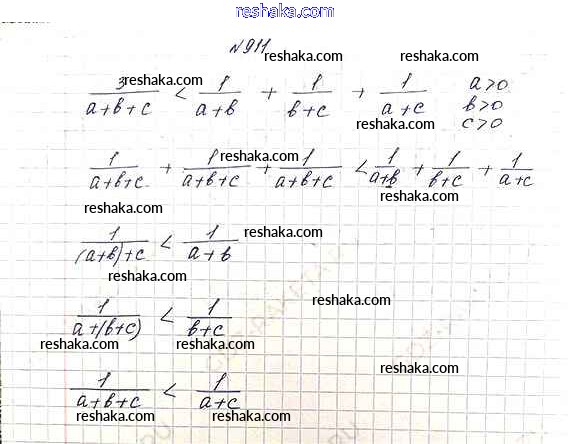 reshaka.com
№911
reshaka.com reshaka.com
3/(a+b+c) < 1/(a+b) + 1/(b+c) + 1/(a+c) a>0
b>0
c>0
reshaka.com
reshaka.com
1/(a+b+c) + 1/(a+b+c) + 1/(a+b+c) < 1/(a+b) + 1/(b+c) + 1/(a+c)
reshaka.com reshaka.com
1/((a+b)+c) < 1/(a+b) reshaka.com
reshaka.com
reshaka.com
1/(a+(b+c)) < 1/(b+c)
reshaka.com reshaka.com
reshaka.com
1/(a+b+c) < 1/(a+c)
reshaka.com reshaka.com reshaka.com